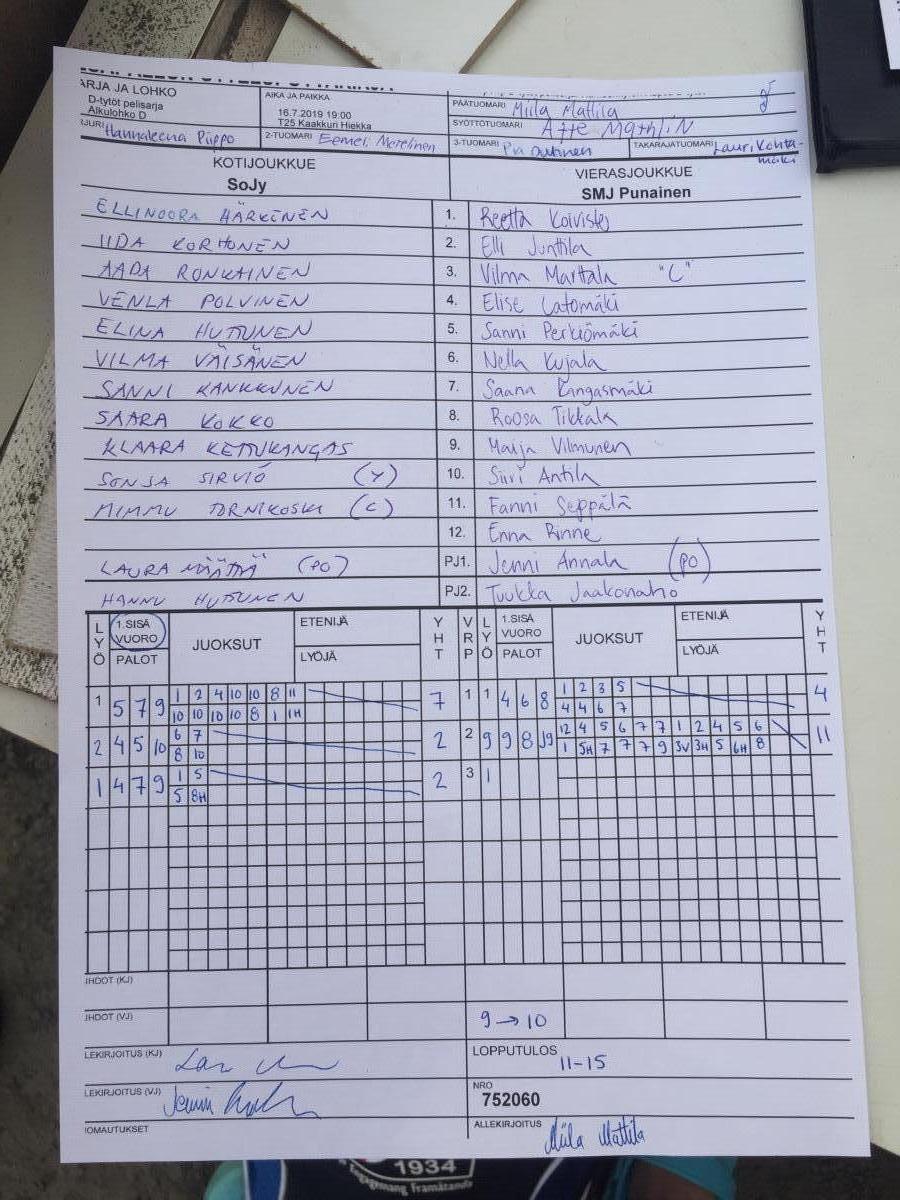 ARJA JA LOHKO
D-tytöt pelisarja
Alkulohko D
AIKA JA PAIKKA
16.7.2019 19:00
T25 Kaakkuri Hiekka
PÄÄTUOMARI Miila Mattila
SYÖTTÖTUOMARI
Hannaleena Piippo
2-TUOMARI Eemeli
3-TUOMARI Pia
TAKARAJATUOMARI Lauri Kohta-
mäki
KOTIJOUKKUE
SoJy
VIERASJOUKKUE
SMJ Punainen
ELLINOORA HÄRKÖNEN 1. Reetta Koivisto
IIDA KORHONEN 2. Elli Junttila
AADA RONKAINEN 3. Vilma Marttala "C"
VENLA POLVINEN 4. Elise Latomäki
ELINA HUTTUNEN 5. Sanni Perkiömäki
VILMA VÄISÄNEN 6. Nella Kujala
SANNI KANKKUNEN 7. Saana Kangasmäki
SAARA KOKKO 8. Roosa Tikkala
KLAARA KETTUKANGAS 9. Maija Vilmunen
SONJA SIRVIÖ (Y) 10. Siiri Antila
MIMMU TORNIKOSKI (C) 11. Fanni Seppälä
12. Enna Rinne
LAURA MÄÄTTÄ (PO) PJ1. Jenni Annala (PO)
HANNU HUTTUNEN PJ2. Tuukka Jaakonaho
LYÖ 1.SISÄ VUORO PALOT JUOKSUT ETENIJÄ LYÖJÄ YHT VRP LYÖ 1.SISÄ VUORO PALOT JUOKSUT ETENIJÄ LYÖJÄ YHT
1 5 7 9 1 2 4 10 10 8 11 7 1 1 4 6 8 1 2 3 5 4
10 10 10 10 8 1 1H 4 4 6 7
2 4 5 10 6 7 2 2 9 9 8 J9 12 4 5 6 7 7 1 2 4 5 6 11
8 10 1 5H 7 7 7 9 3V 3H 5 6H 8
1 4 7 9 1 5 2 3 1
5 8H
JHDOT (KJ)
JHDOT (VJ) 9 → 10
LEKIRJOITUS (KJ)
LOPPUTULOS
11-15
LEKIRJOITUS (VJ)
NRO
752060
IOMAUTUKSET
ALLEKIRJOITUS Miila Mattila
1934
Framåtanda